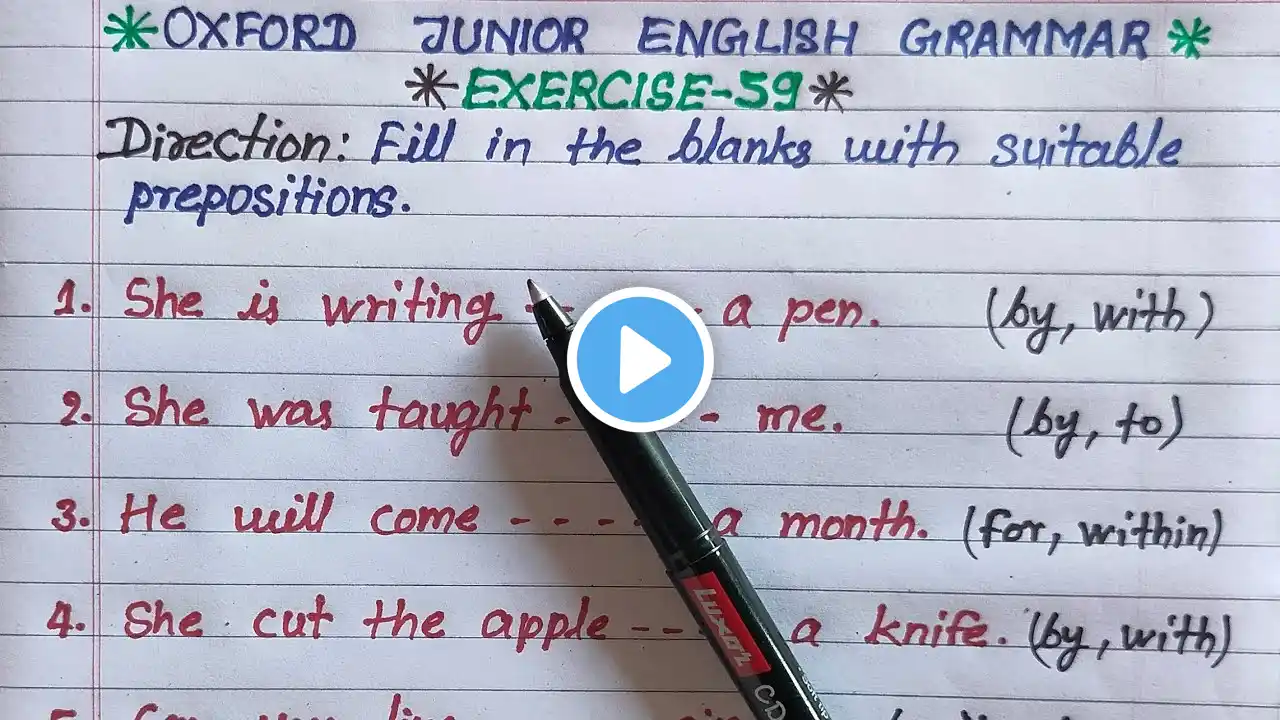 *OXFORD JUNIOR ENGLISH GRAMMAR*
*EXERCISE-59*
Direction: Fill in the blanks with suitable
prepositions.
1. She is writing - - a pen. (by, with)
2. She was taught - - me. (by, to)
3. He will come - - - - a month. (for, within)
4. She cut the apple - - - a knife. (by, with)
LUXOR